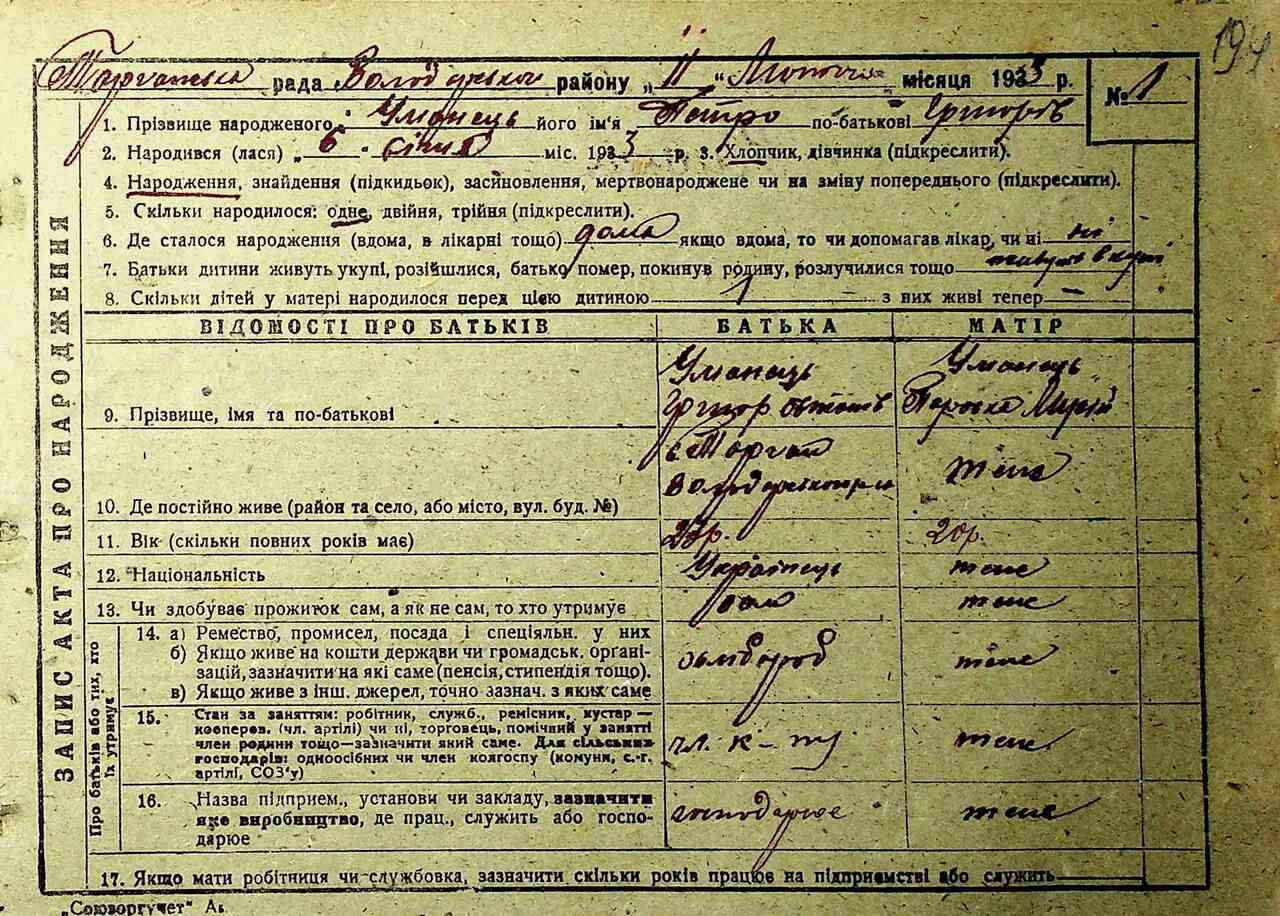 194
Торчанська рада Володарського району „11“ Лютого місяця 1933 р. № 1
ЗАПИС АКТА ПРО НАРОДЖЕННЯ
1. Прізвище народженого Уманець його ім'я Петро по-батькові Григорів
2. Народився (лася) „6“ січня міс. 1933 р. 3. Хлопчик, дівчинка (підкреслити).
4. Народження, знайдення (підкидьок), засиновлення, мертвонароджене чи на зміну попереднього (підкреслити).
5. Скільки народилося: одне, двійня, трійня (підкреслити).
6. Де сталося народження (вдома, в лікарні тощо) дома якщо вдома, то чи допомагав лікар, чи ні ні
7. Батьки дитини живуть укупі, розійшлися, батько помер, покинув родину, розлучилися тощо живуть вкупі
8. Скільки дітей у матері народилося перед цією дитиною 1 з них живі тепер —
ВІДОМОСТІ ПРО БАТЬКІВ БАТЬКА МАТІР
Уманець Уманець
9. Прізвище, імя та по-батькові Григор
10. Де постійно живе (район та село, або місто, вул. буд. №) теж
11. Вік (скільки повних років має) 20р.
12. Національність Українець теж
13. Чи здобуває прожиток сам, а як не сам, то хто утримує сам теж
Про батьків або тих, хто їх утримує
14. а) Ремество, промисел, посада і спеціяльн. у них
б) Якщо живе на кошти держави чи громадськ. орґані-
зацій, зазначити на які саме (пенсія, стипендія тощо). хлібороб теж
в) Якщо живе з інш. джерел, точно зазнач. з яких саме
15. Стан за заняттям: робітник, служб., ремісник, кустар—
кооперов. (чл. артілі) чи ні, торговець, помічний у занятті
член родини тощо—зазначити який саме. Для сільських чл. к-пу теж
господарів: одноосібних чи член колгоспу (комуни, с.-г.
артілі, СОЗ'у)
16. Назва підприєм., установи чи закладу, зазначити
яке виробництво, де прац., служить або госпо- господарює теж
дарює
17. Якщо мати робітниця чи службовка, зазначити скільки років працює на підприємстві або служить —
„Союзоргучет“